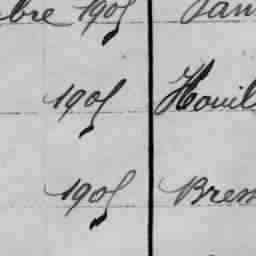 bre 1905 Pan
1905 Houil
1905 Bres